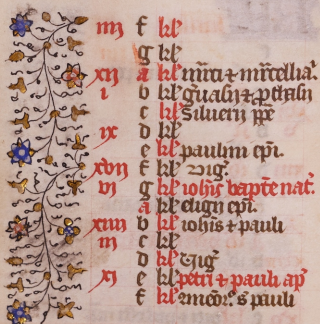 iiii f kl'
g kl'
xii a kl' mrci & mrcellia.
i b kl' geruasij & p̱thasij
c kl' siluerii ppe
ix d kl'
e kl' paulini epi.
xvii f kl' vig'.
vi g kl' iohis bapte nat.
a kl' eligii epi.
xiiii b kl' iohis & pauli
iii c kl'
d kl' vig'.
xi e kl' petri & pauli ap
f kl' 2meor. s pauli